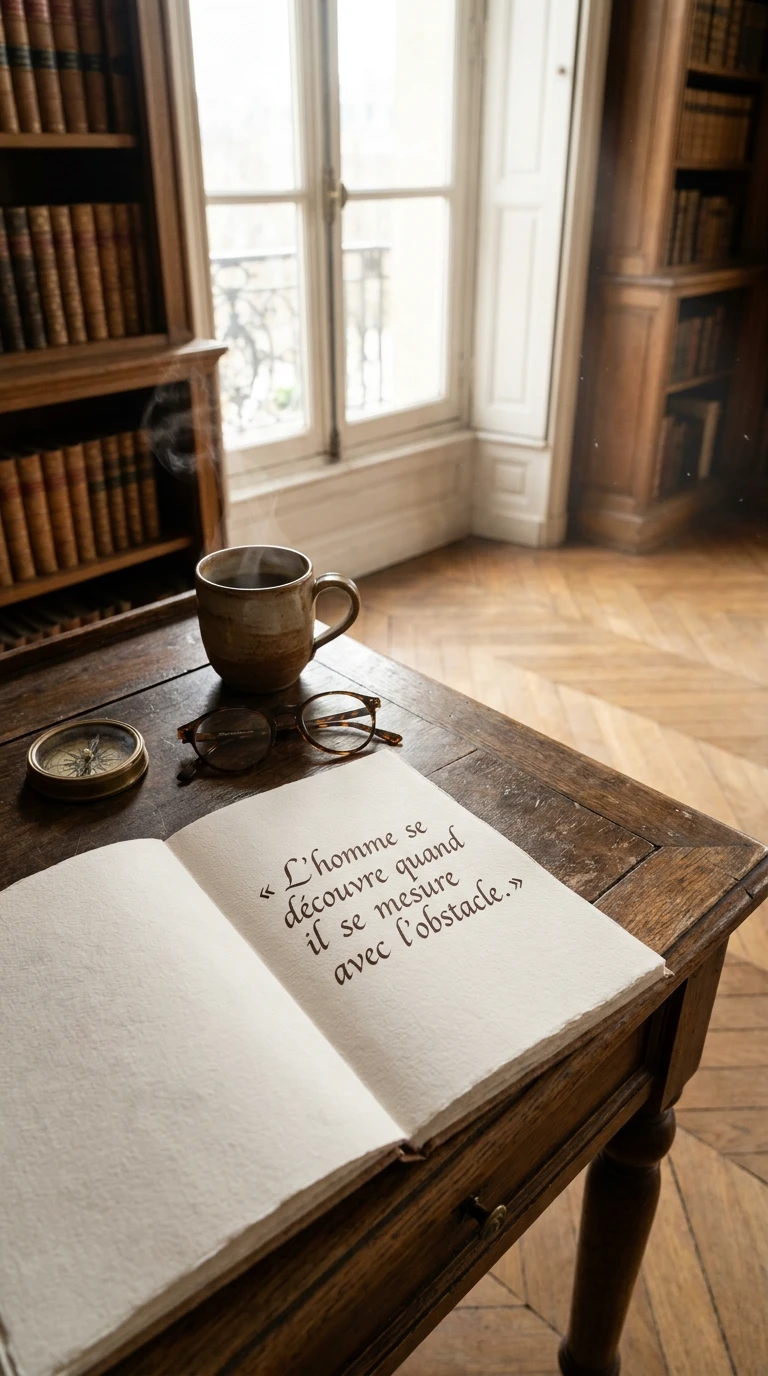 « L'homme se
découvre quand
il se mesure
avec l'obstacle.»